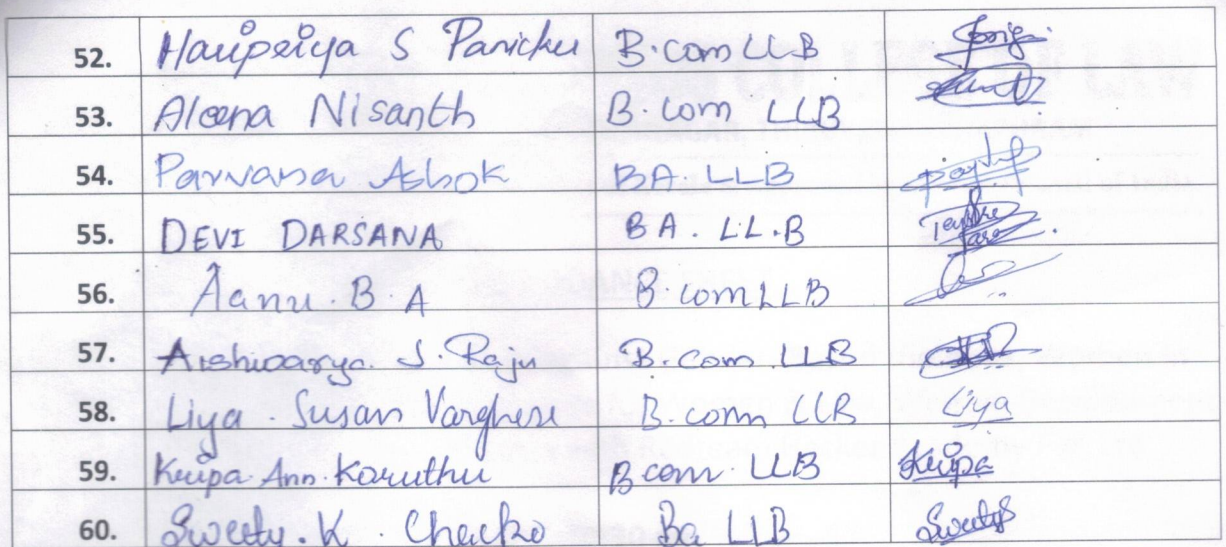 52. Haripriya S Panicku B.com LLB
53. Aleena Nisanth B.com LLB
54. Parvana Ashok BA. LLB
55. DEVI DARSANA BA. LL.B
56. Aanu. B. A B.com LLB
57. Aishwarya. S. Raju B.com. LLB
58. Liya. Susan Varghese B.com LLB Liya
59. Kripa. Ann. Koruthu B com. LLB Kripa
60. Sweety. K. Chacko Ba LLB Sweety